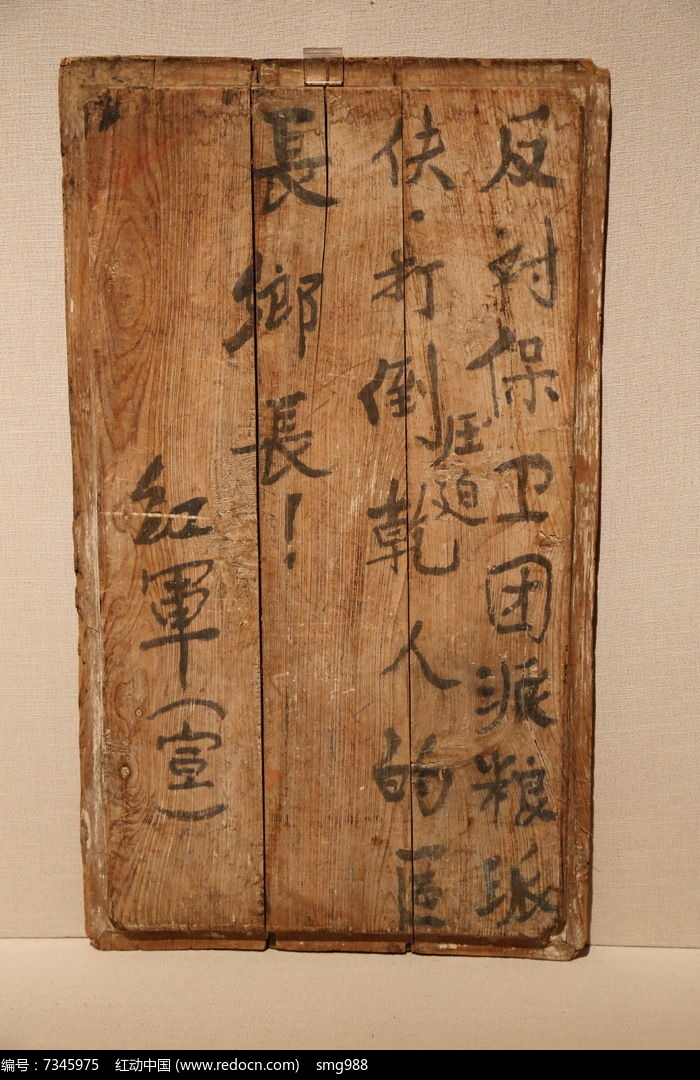 反对保卫团派粮派
伕·打倒压迫乾人的區
長鄉長！
红軍(宣)
编号：7345975 红动中国 (www.redocn.com) smg988